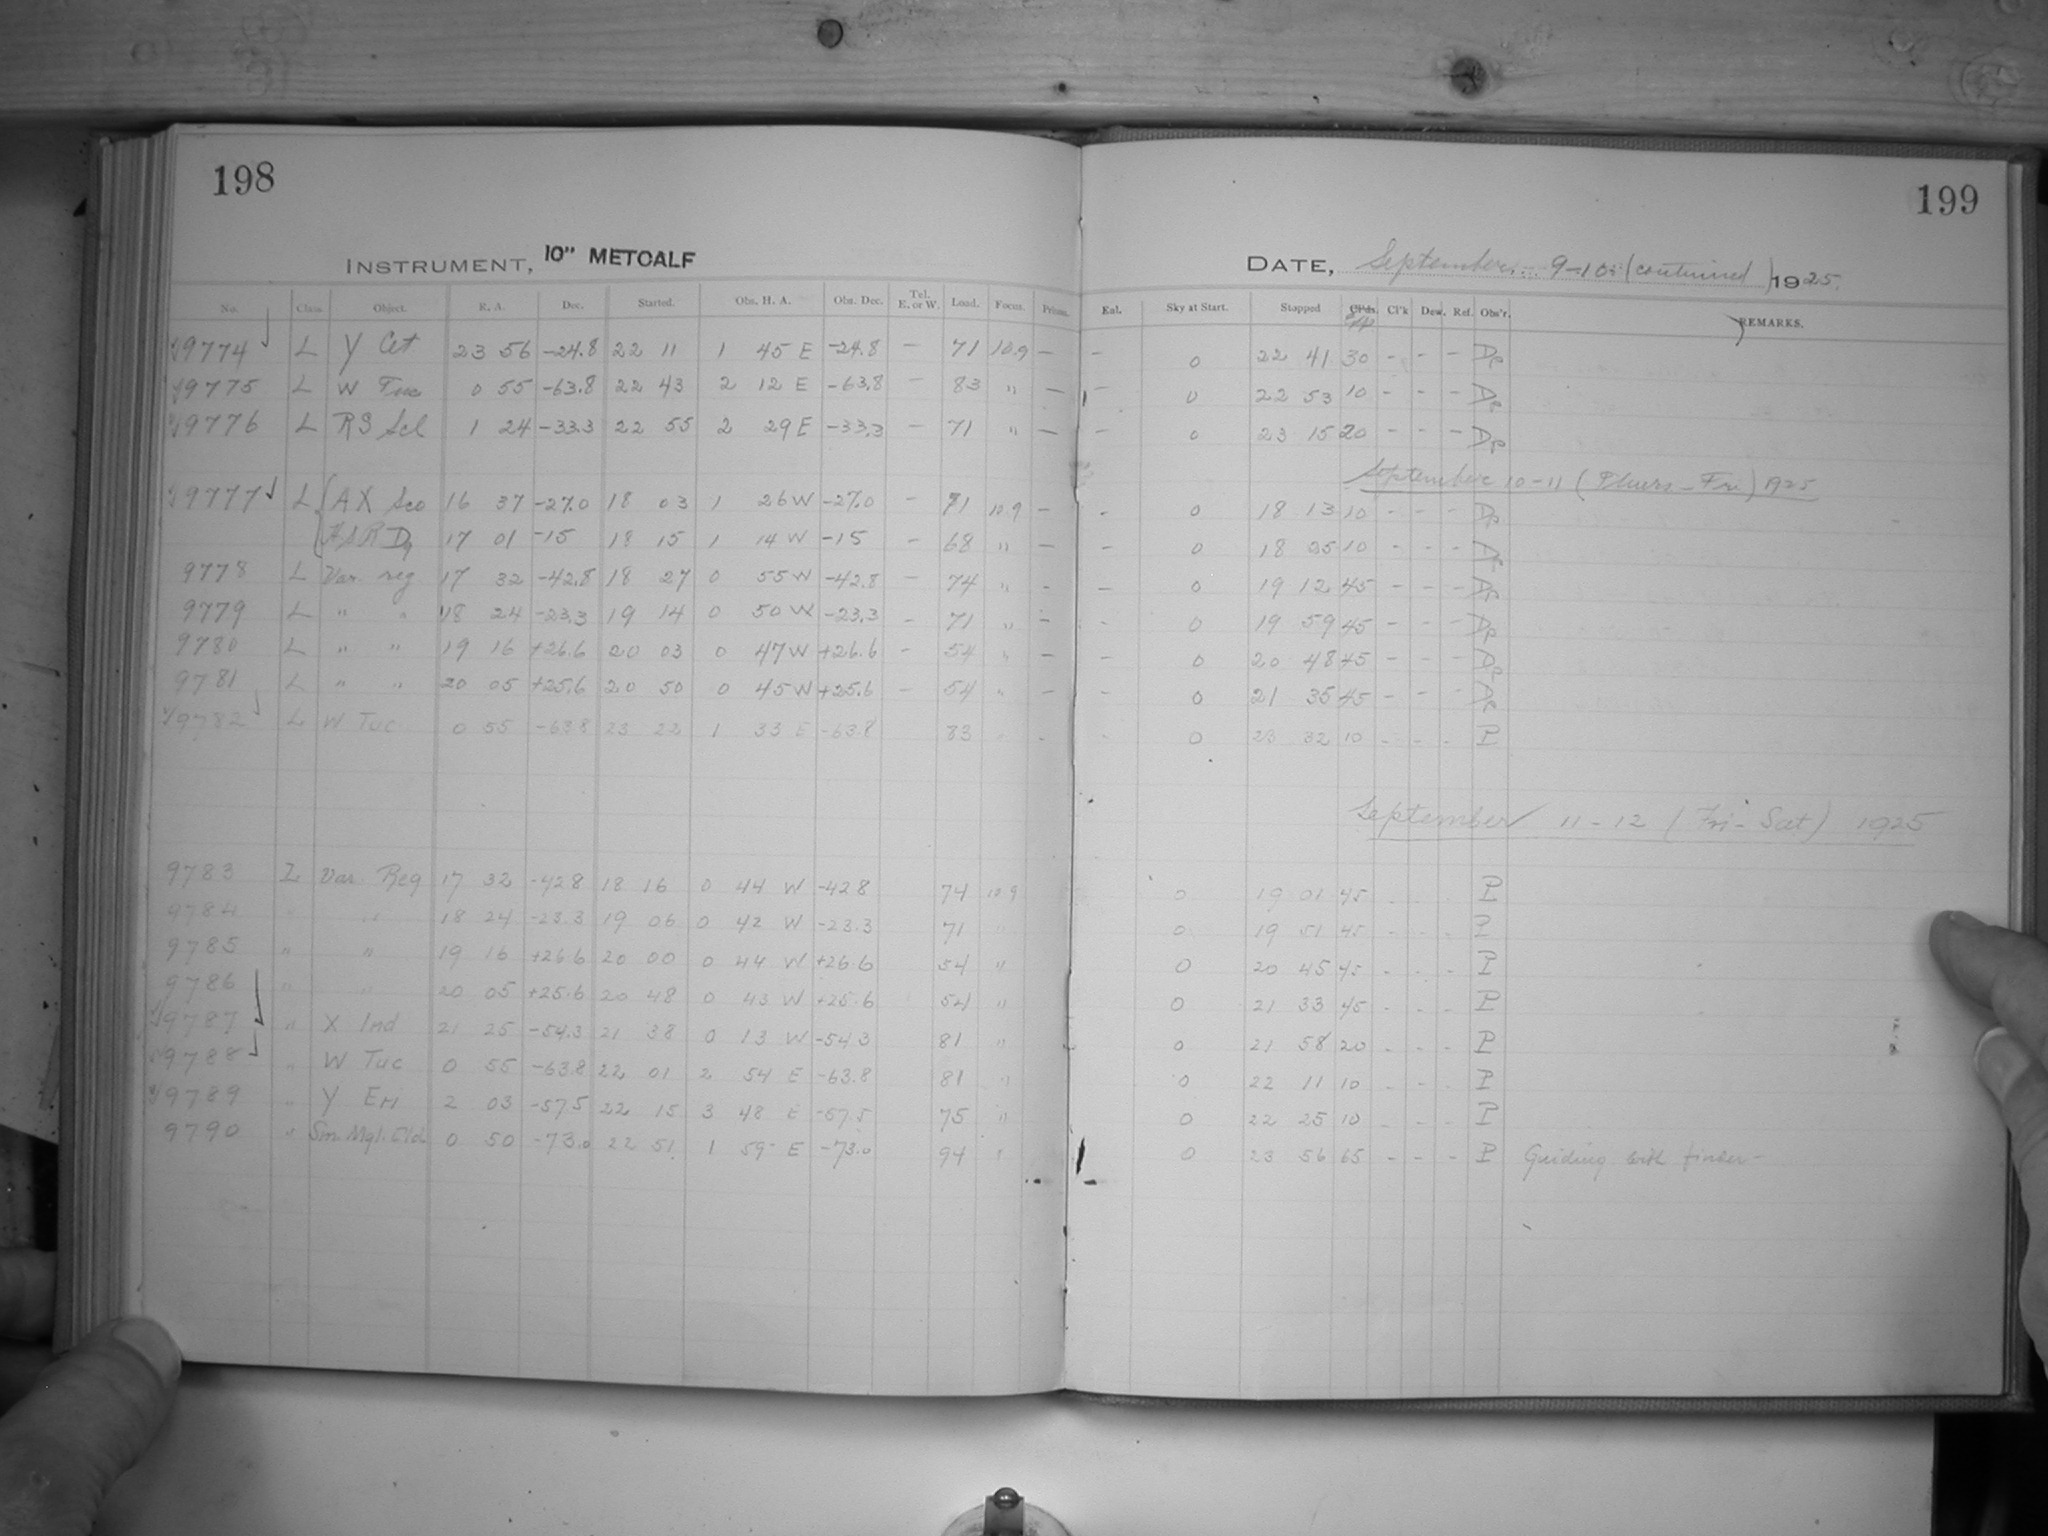 198
INSTRUMENT, 10" METCALF
No. Class. Object. R. A. Dec. Started. Obs. H. A. Obs. Dec. Tel. E. or W. Load. Focus. Prisms.
9774 L Y Cet 23 56 -24.8 22 11 1 45 E -24.8 - 71 10.9 -
9775 L W Tuc 0 55 -63.8 22 43 2 12 E -63.8 - 83 " -
9776 L RS Scl 1 24 -33.3 22 55 2 29 E -33.3 - 71 " -
9777 L AX Sco 16 37 -27.0 18 03 1 26 W -27.0 - 71 10.9 -
17 01 -15 18 15 1 14 W -15 - 68 " -
9778 L Var. reg 17 32 -42.8 18 27 0 55 W -42.8 - 74 " -
9779 L " " 18 24 -23.3 19 14 0 50 W -23.3 - 71 " -
9780 L " " 19 16 +26.6 20 03 0 47 W +26.6 - 54 " -
9781 L " " 20 05 +25.6 20 50 0 45 W +25.6 - 54 " -
9782 L W Tuc 0 55 -63.8 23 22 1 33 E -63.8 83 " -
9783 L Var. Reg 17 32 -42.8 18 16 0 44 W -42.8 74 10.9
9784 " " 18 24 -23.3 19 06 0 42 W -23.3 71 "
9785 " " 19 16 +26.6 20 00 0 44 W +26.6 54 "
9786 " " 20 05 +25.6 20 48 0 43 W +25.6 54 "
9787 " X Ind 21 25 -54.3 21 38 0 13 W -54.3 81 "
9788 " W Tuc 0 55 -63.8 22 01 2 54 E -63.8 81 "
9789 " Y Eri 2 03 -57.5 22 15 3 48 E -57.5 75 "
9790 " Sm. Mgl. Cld. 0 50 -73.0 22 51 1 59 E -73.0 94 "
199
DATE, September 9-10 (continued) 1925.
Eal. Sky at Start. Stopped Cl'ds. Cl'k Dew. Ref. Obs'r. REMARKS.
- 0 22 41 30 - - -
- 0 22 53 10 - - -
- 0 23 15 20 - - -
September 10-11 (Thurs-Fri) 1925
- 0 18 13 10 - - -
- 0 18 25 10 - - -
- 0 19 12 45 - - -
- 0 19 59 45 - - -
- 0 20 48 45 - - -
- 0 21 35 45 - - -
- 0 23 32 10 - - - P
September 11-12 (Fri-Sat) 1925
0 19 01 45 - - - P
0 19 51 45 - - - P
0 20 45 45 - - - P
0 21 33 45 - - - P
0 21 58 20 - - - P
0 22 11 10 - - - P
0 22 25 10 - - - P
0 23 56 65 - - - P Guiding with finder-